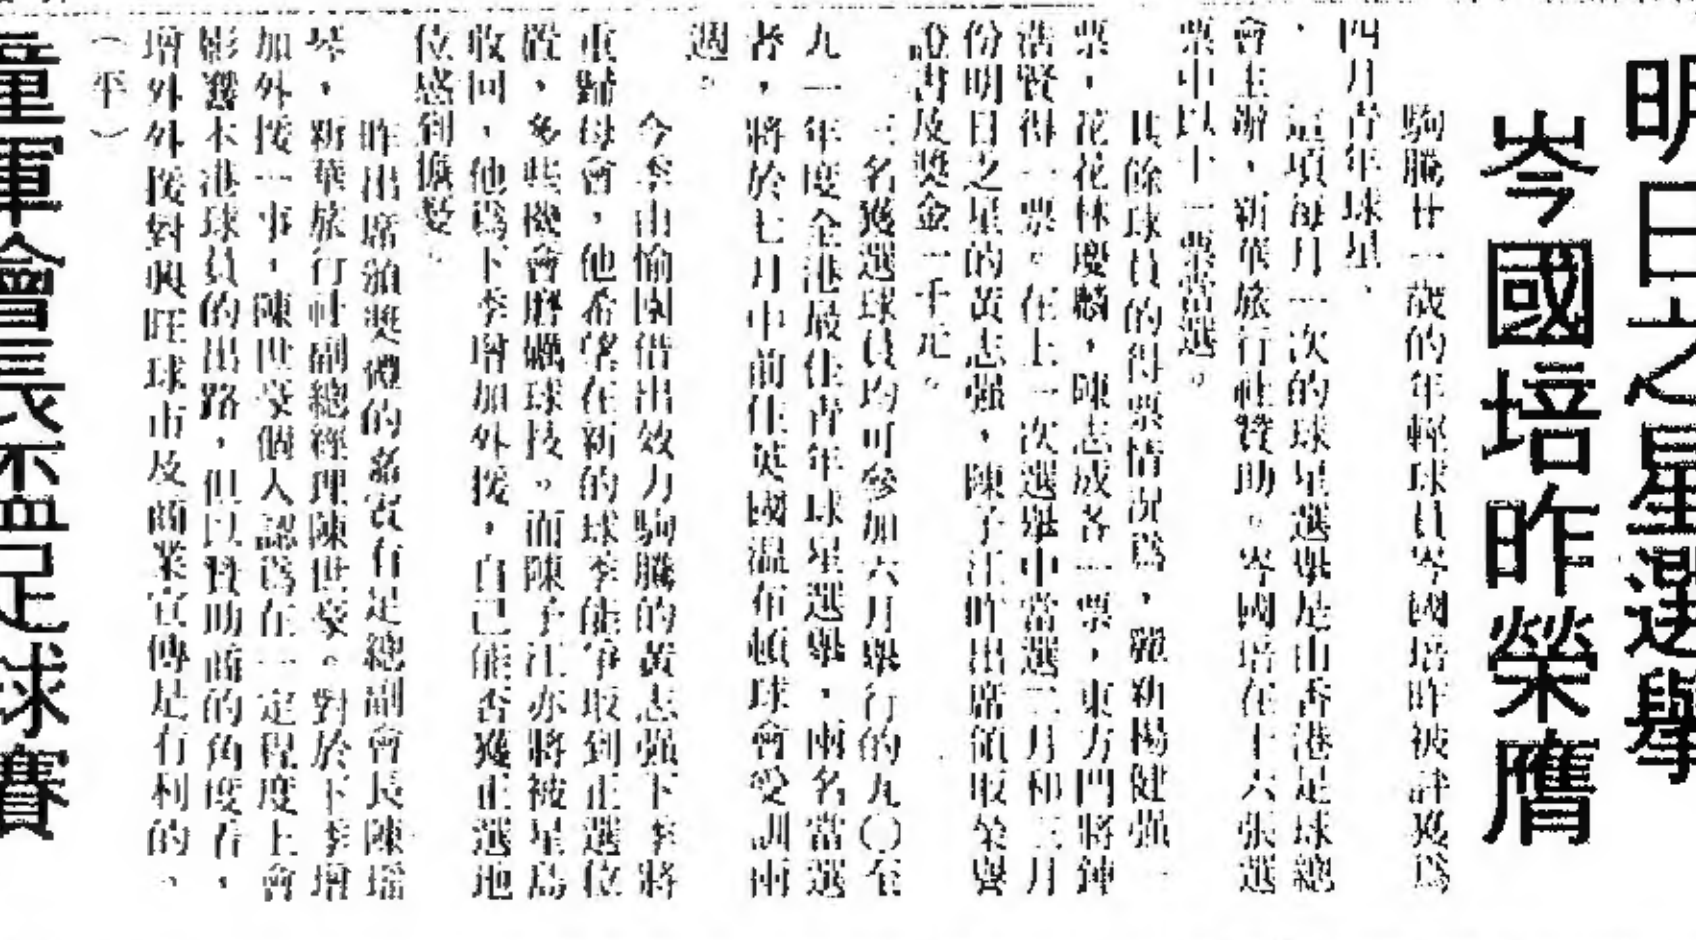 明日之星選舉
岑國培昨榮膺
駒騰廿一歲的年輕球員岑國培昨被評選爲
四月青年球星。
這項每月一次的球星選舉是由香港足球總
會主辦，新華旅行社贊助。岑國培在十六張選
票中以十一票當選。
其餘球員的得票情況爲，麗新楊健強一
票，花花林慶麟，陳志成各一票，東方門將鍾
浩賢得一票。在上一次選舉中當選二月和三月
份明日之星的黃志強，陳子江昨出席領取榮譽
證書及獎金一千元。
三名獲選球員均可參加六月舉行的九〇至
九一年度全港最佳青年球星選舉，兩名當選
者，將於七月中前往英國溫布頓球會受訓兩
週。
今季由愉園借出效力駒騰的黃志強下季將
重歸母會，他希望在新的球季能爭取到正選位
置，多些機會磨礪球技。而陳子江亦將被星島
收回，他爲下季增加外援，自己能否獲正選地
位感到擔憂。
昨出席頒獎禮的嘉賓有足總副會長陳瑤
琴，新華旅行社副總經理陳世豪。對於下季增
加外援一事，陳世豪個人認爲在一定程度上會
影響本港球員的出路，但以贊助商的角度看，
增外外援對興旺球市及商業宣傳是有利的。
（平）
童軍會長盃足球賽